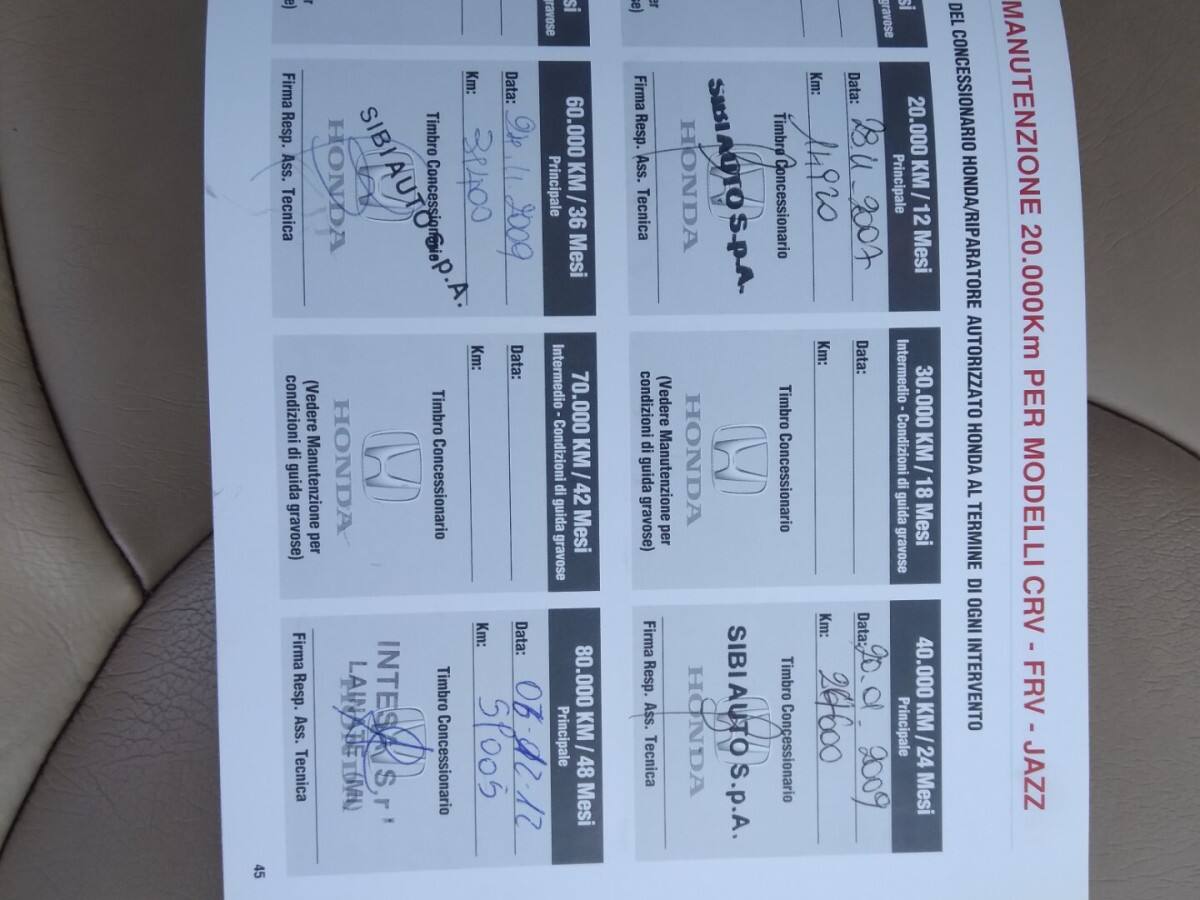 MANUTENZIONE 20.000Km PER MODELLI CRV - FRV - JAZZ
DEL CONCESSIONARIO HONDA/RIPARATORE AUTORIZZATO HONDA AL TERMINE DI OGNI INTERVENTO
si
gravose
20.000 KM / 12 Mesi
Principale
Data: 28-11-2007
Km: 14920
Timbro Concessionario
SIBI AUTO S.p.A.
HONDA
Firma Resp. Ass. Tecnica
30.000 KM / 18 Mesi
Intermedio - Condizioni di guida gravose
Data:
Km:
Timbro Concessionario
HONDA
(Vedere Manutenzione per
condizioni di guida gravose)
40.000 KM / 24 Mesi
Principale
Data: 2009
Km:
Timbro Concessionario
SIBI AUTO S.p.A.
HONDA
Firma Resp. Ass. Tecnica
si
gravose
60.000 KM / 36 Mesi
Principale
Data: 11.2009
Km:
Timbro Concessionario
SIBI AUTO S.p.A.
HONDA
Firma Resp. Ass. Tecnica
70.000 KM / 42 Mesi
Intermedio - Condizioni di guida gravose
Data:
Km:
Timbro Concessionario
HONDA
(Vedere Manutenzione per
condizioni di guida gravose)
80.000 KM / 48 Mesi
Principale
Data: 06-12-12
Km:
Timbro Concessionario
LAINATE (MI)
Firma Resp. Ass. Tecnica
45